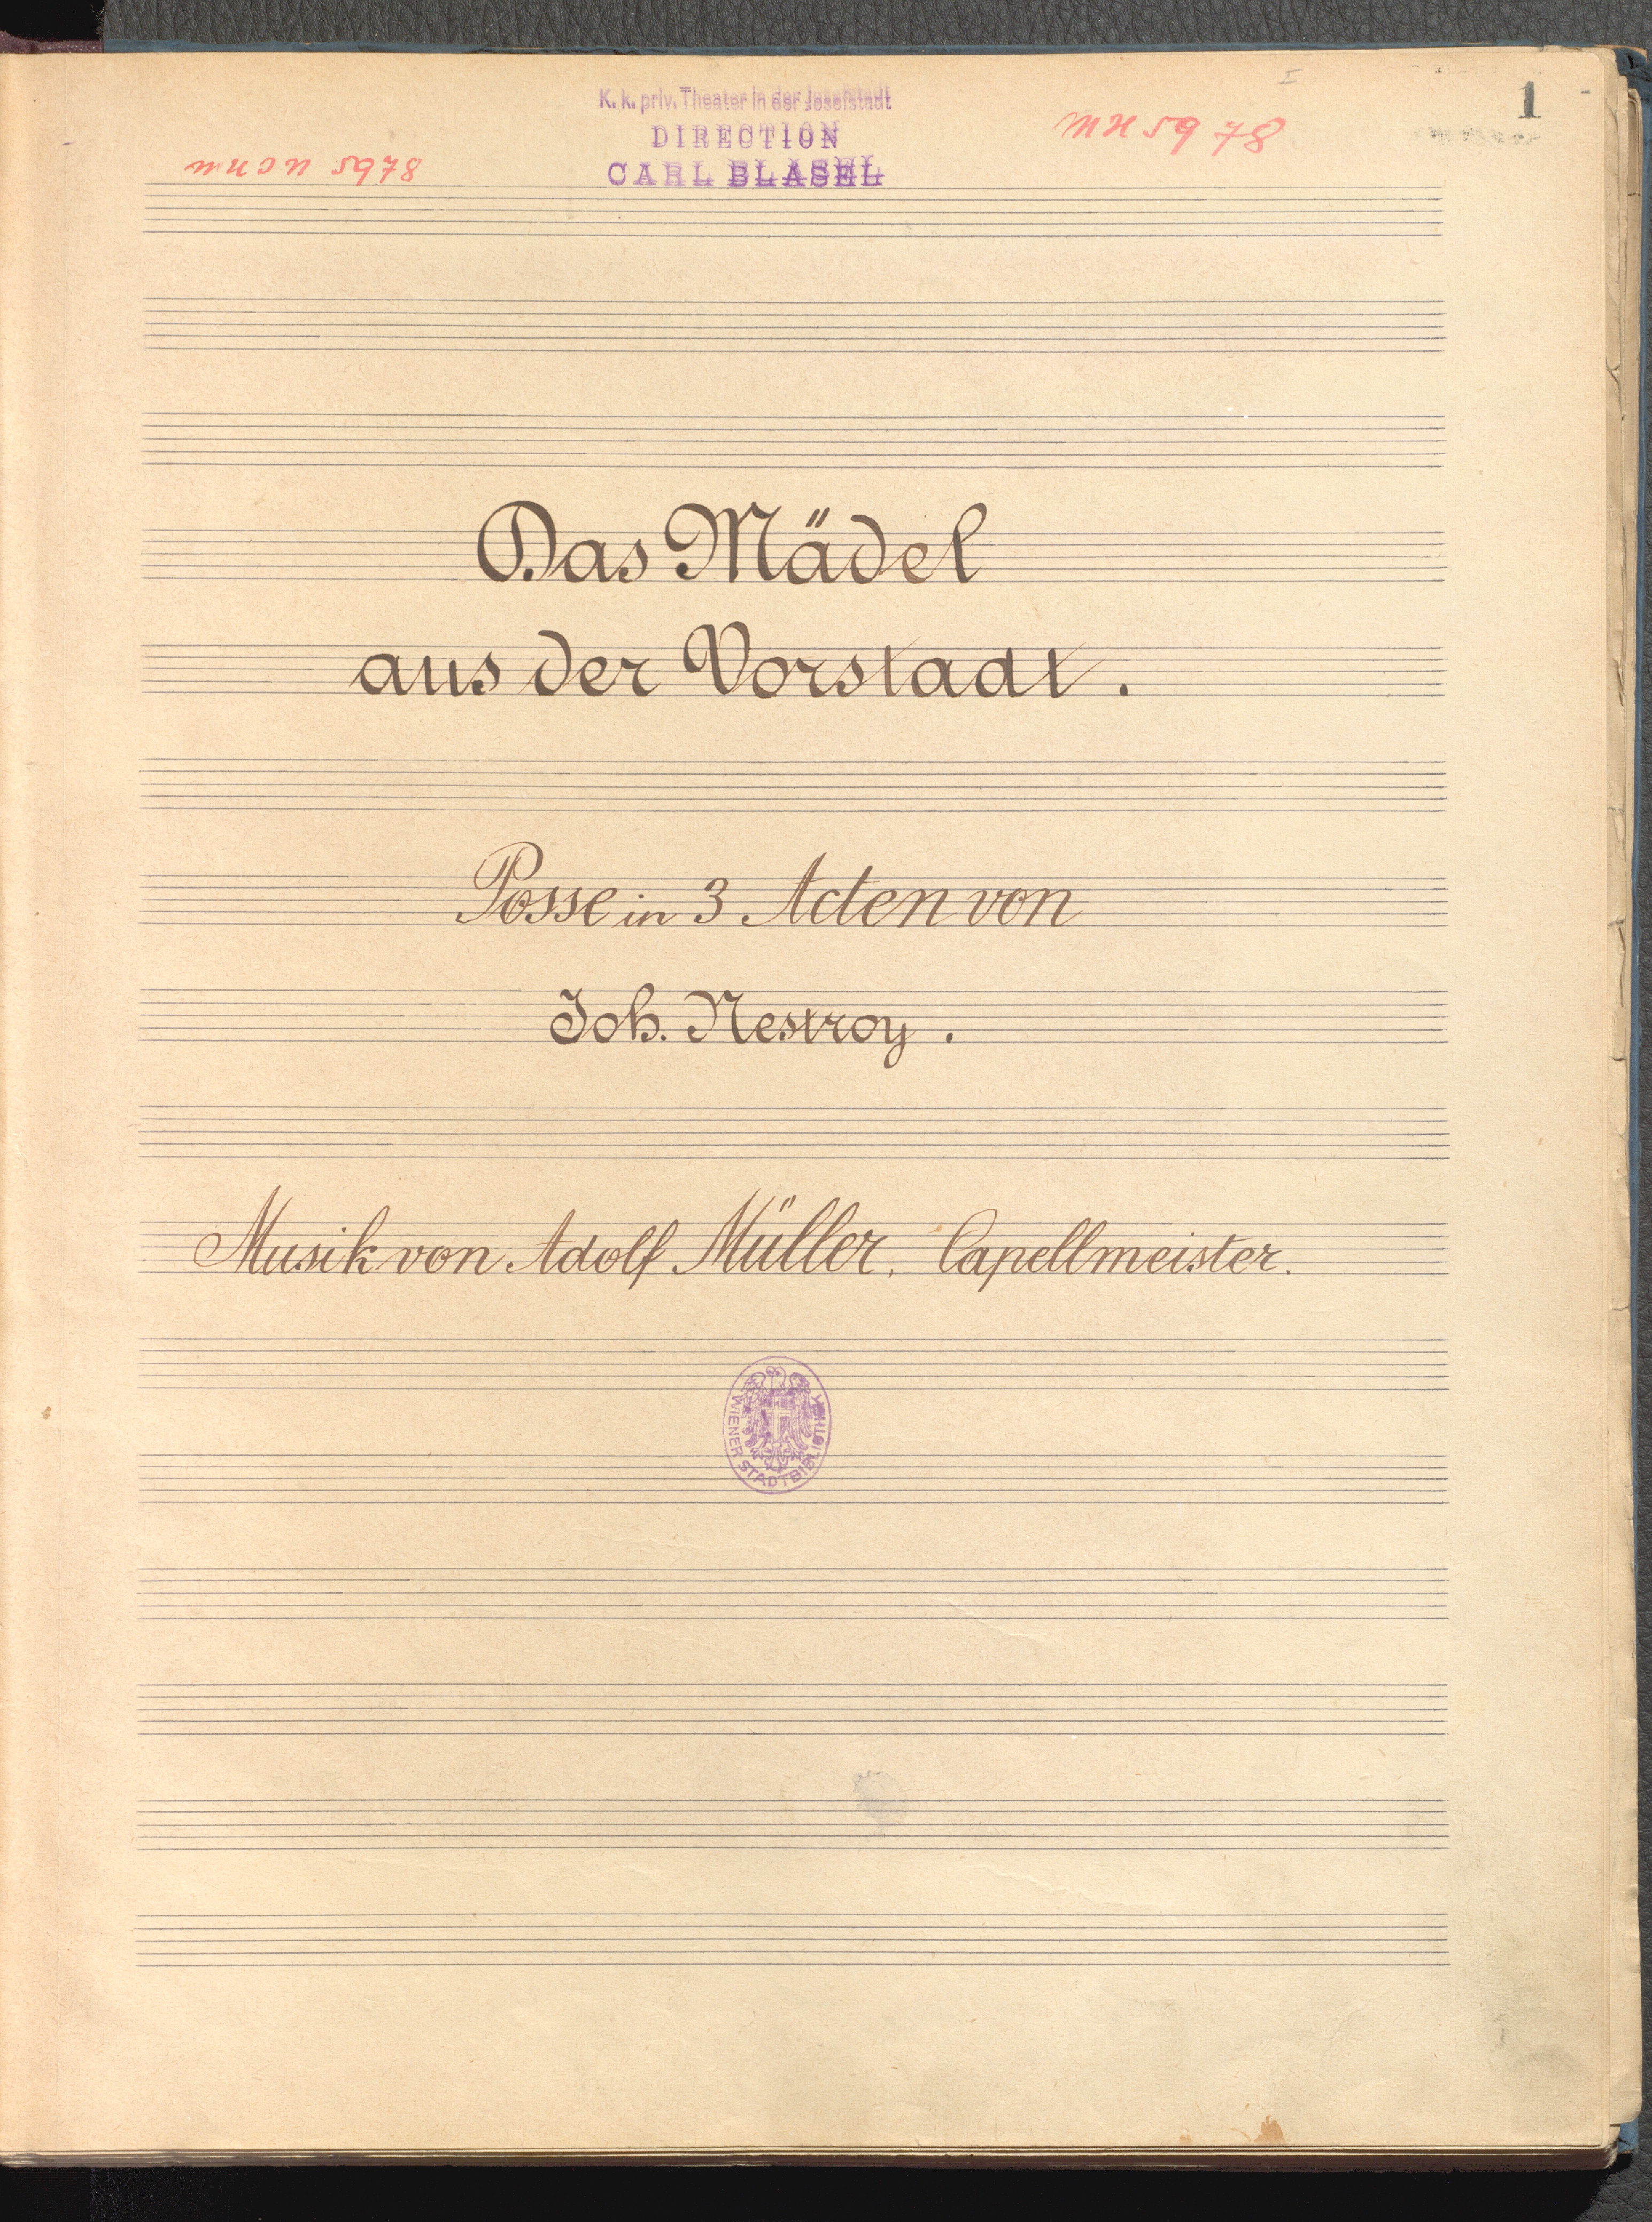 I
1
K. k. priv. Theater in der Josefstadt
DIRECTION
CARL BLASEL
MH 5978
5978
Das Mädel
aus der Vorstadt.
Posse in 3 Acten von
Joh. Nestroy.
Musik von Adolf Müller, Capellmeister.
WIENER STADTBIBLIOTHEK